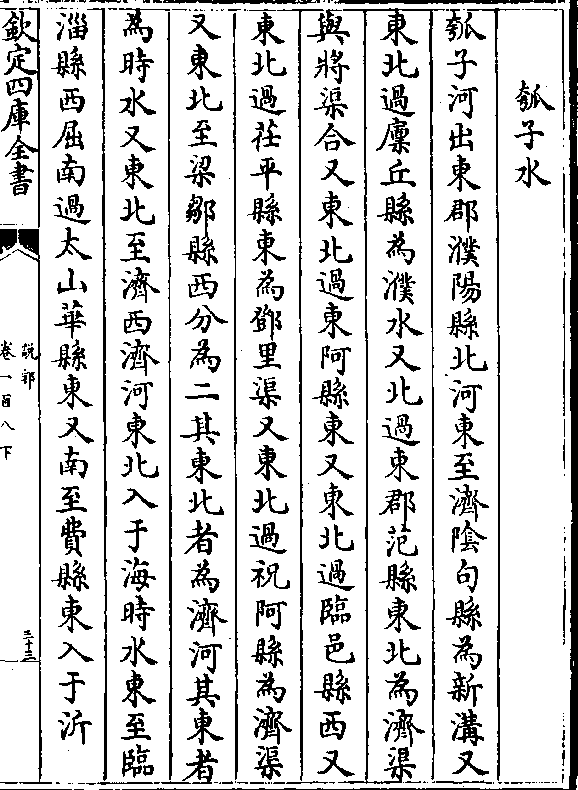 瓠子水
瓠子河出東郡濮陽縣北河東至濟隂句縣為新溝又
東北過廩丘縣為濮水又北過東郡范縣東北為濟渠
與將渠合又東北過東阿縣東又東北過臨邑縣西又
東北過茌平縣東為鄧里渠又東北過祝阿縣為濟渠
又東北至梁鄒縣西分為二其東北者為濟河其東者
為時水又東北至濟西濟河東北入于海時水東至臨
淄縣西屈南過太山華縣東又南至費縣東入于沂
欽定四庫全書
說郛
卷一百八下
三十三